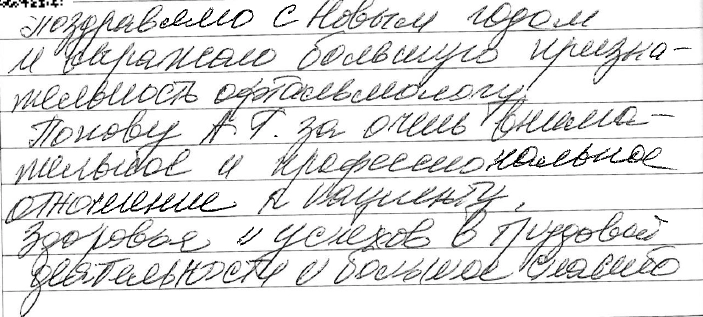 поздравляю с Новым годом
и выражаю большую призна-
тельность офтальмологу
Попову А.Г. за очень внима-
тельное и профессиональное
отношение к пациенту.
Здоровья и успехов в трудовой
деятельности и большое спасибо